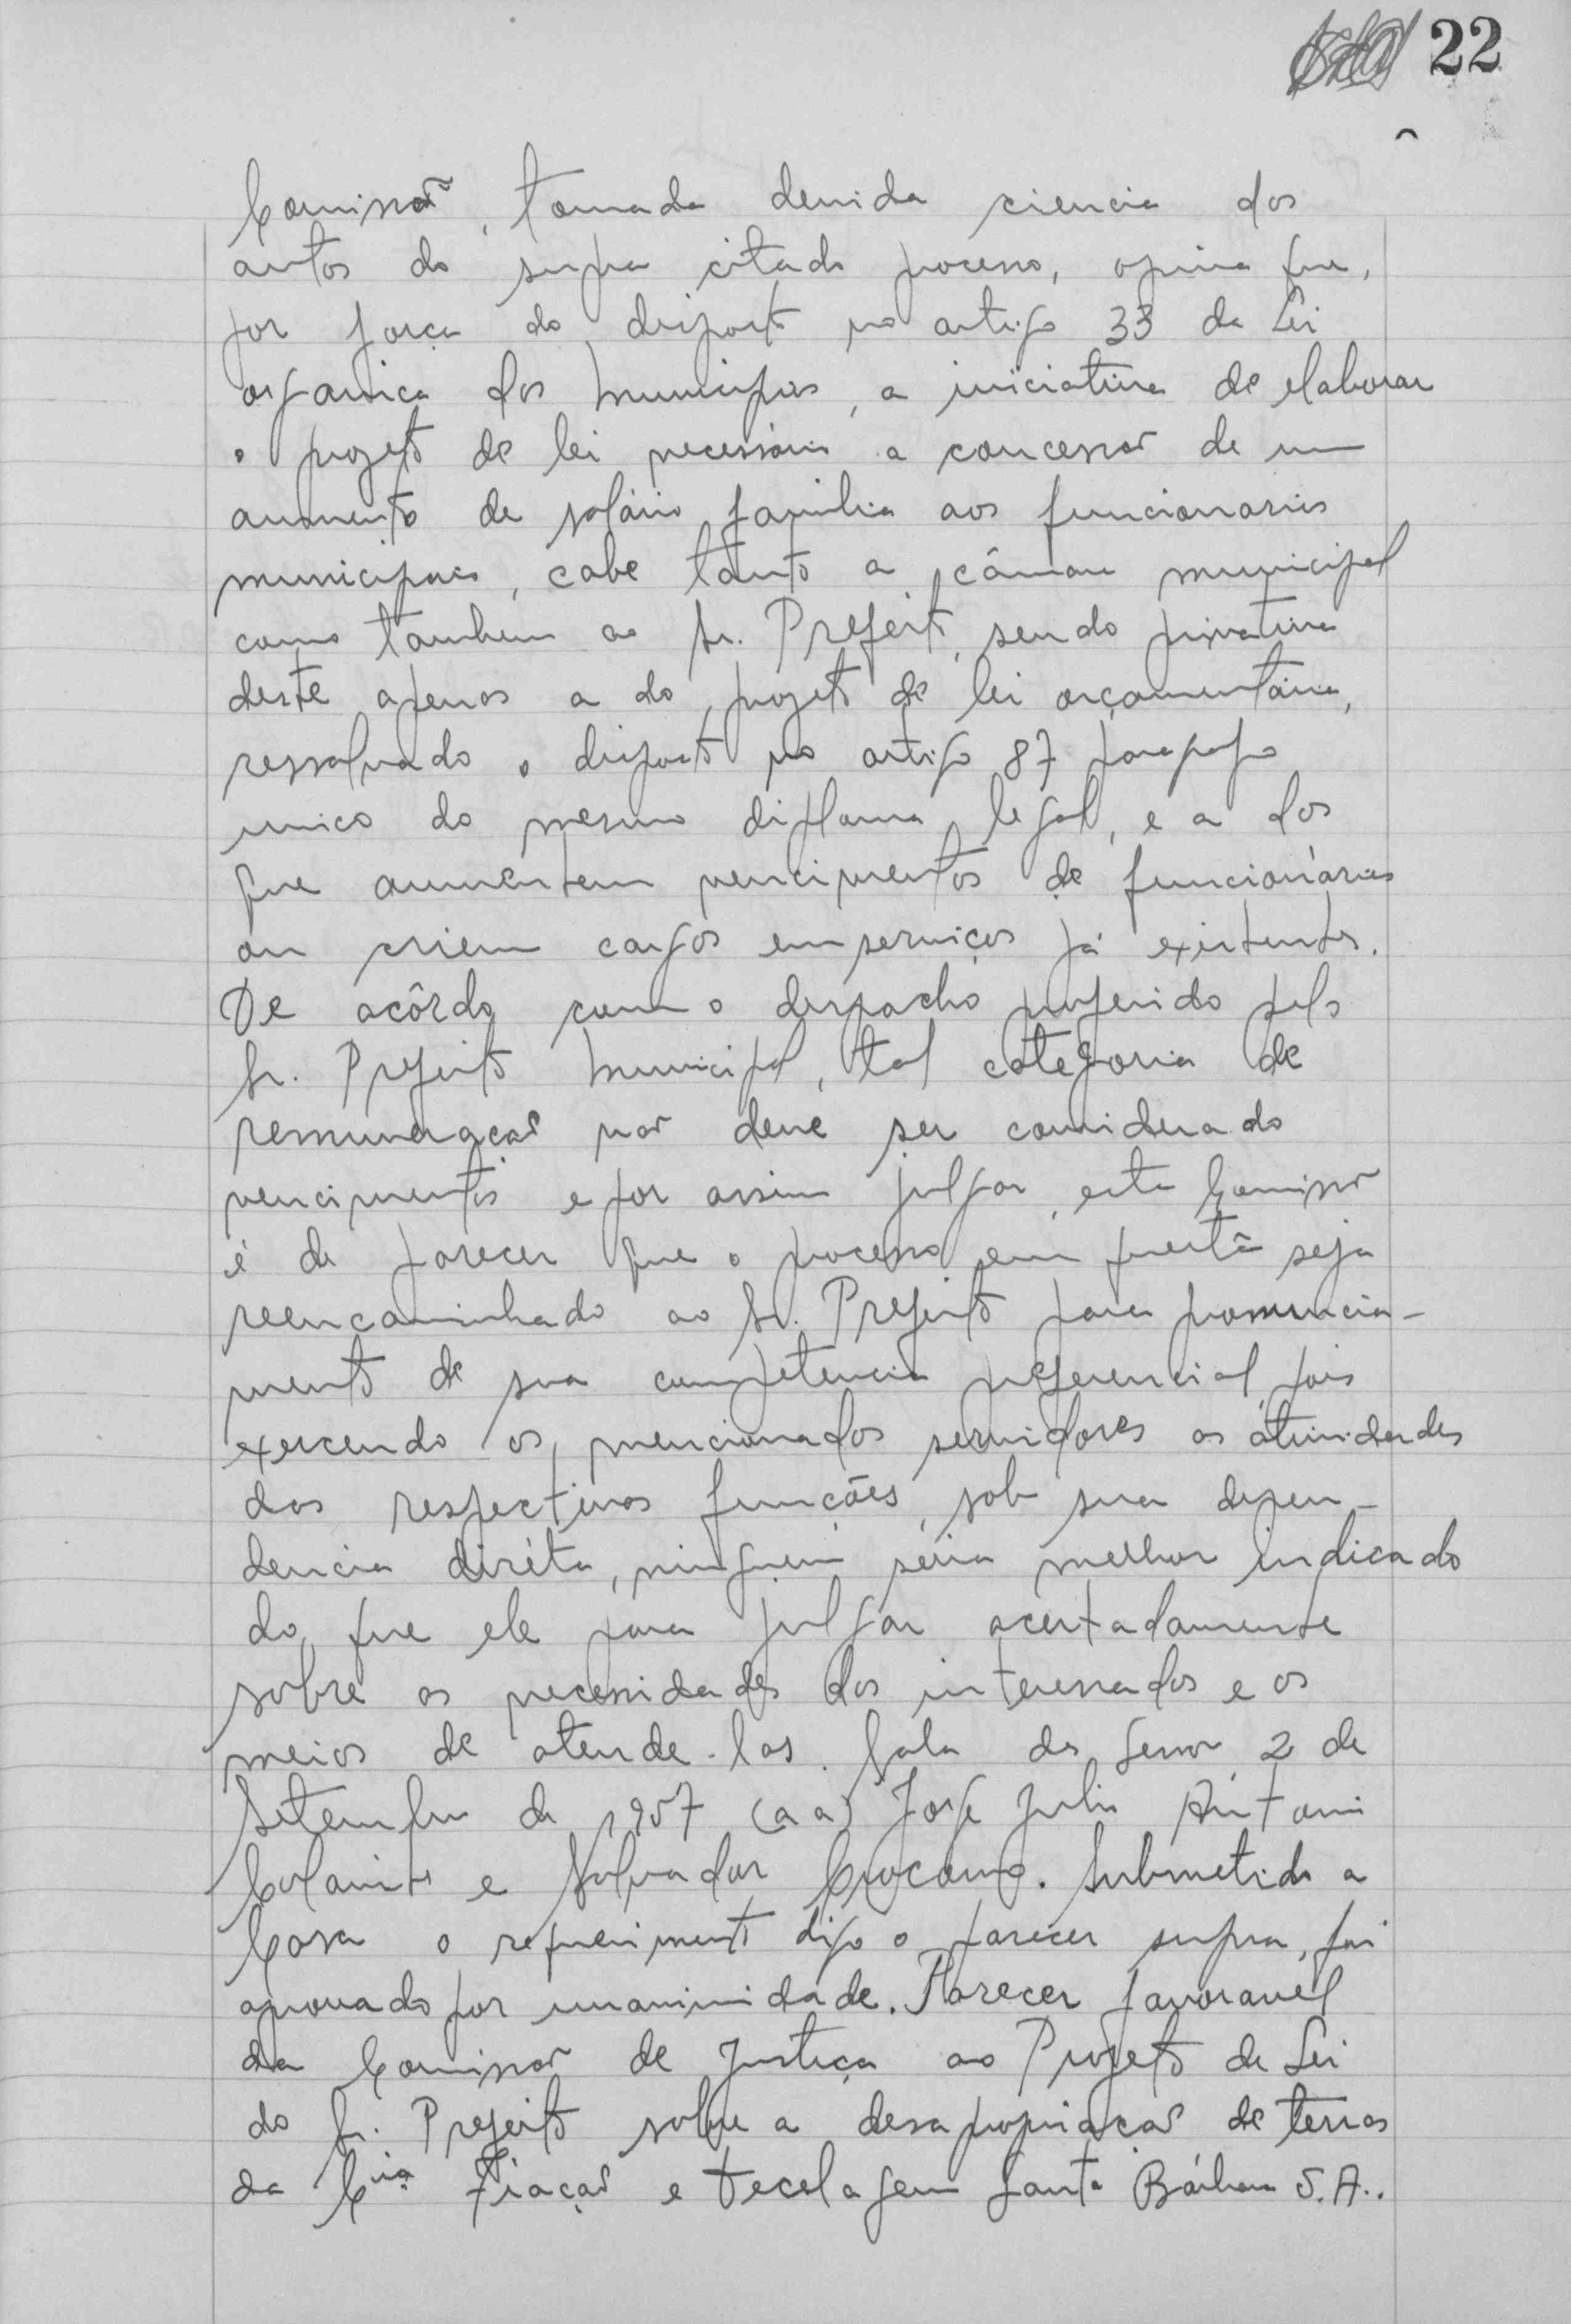 22
Comissão, tomada devida ciencia dos
autos do supra citado processo, opina que,
por força do disposto no artigo 33 da Lei
organica dos Municipios, a iniciativa de elaborar
o projeto de lei necessário a concessão de um
aumento de salário familia aos funcionarios
municipais, cabe tanto a câmara municipal
como tambem ao Sr. Prefeito, sendo privativa
deste apenas a do projeto de lei orçamentária,
ressalvado o disposto no artigo 87 paragrafo
unico do mesmo diploma legal, e a dos
que aumentem vencimentos de funcionários
ou criem cargos em serviços já existentes.
De acôrdo com o despacho proferido pelo
Sr. Prefeito Municipal, tal categoria de
remuneração não deve ser considerado
vencimentos e por assim julgar, esta Comissão
é de parecer que o processo em questã seja
reencaminhado ao Sr. Prefeito para pronuncia-
mento de sua competencia preferencial, pois
exercendo os mencionados servidores as atividades
das respectivas funções, sob sua depen-
dencia diréta, ninguem séria melhor indicado
do que ele para julgar acertadamente
sobre as necessidades dos interessados e os
meios de atende-las. Sala da Sessão, 2 de
Setembro de 1957 (a a) José Julio Antonio
e Salvador. Submetido a
Casa o requerimento digo o parecer supra, foi
aprovado por unanimidade. Parecer favoravel
da Comissão de Justiça ao Projeto de Lei
do Sr. Prefeito sobre a desapropriação de terras
da Cia Fiação e Tecelagem Santa Bárbara S.A..